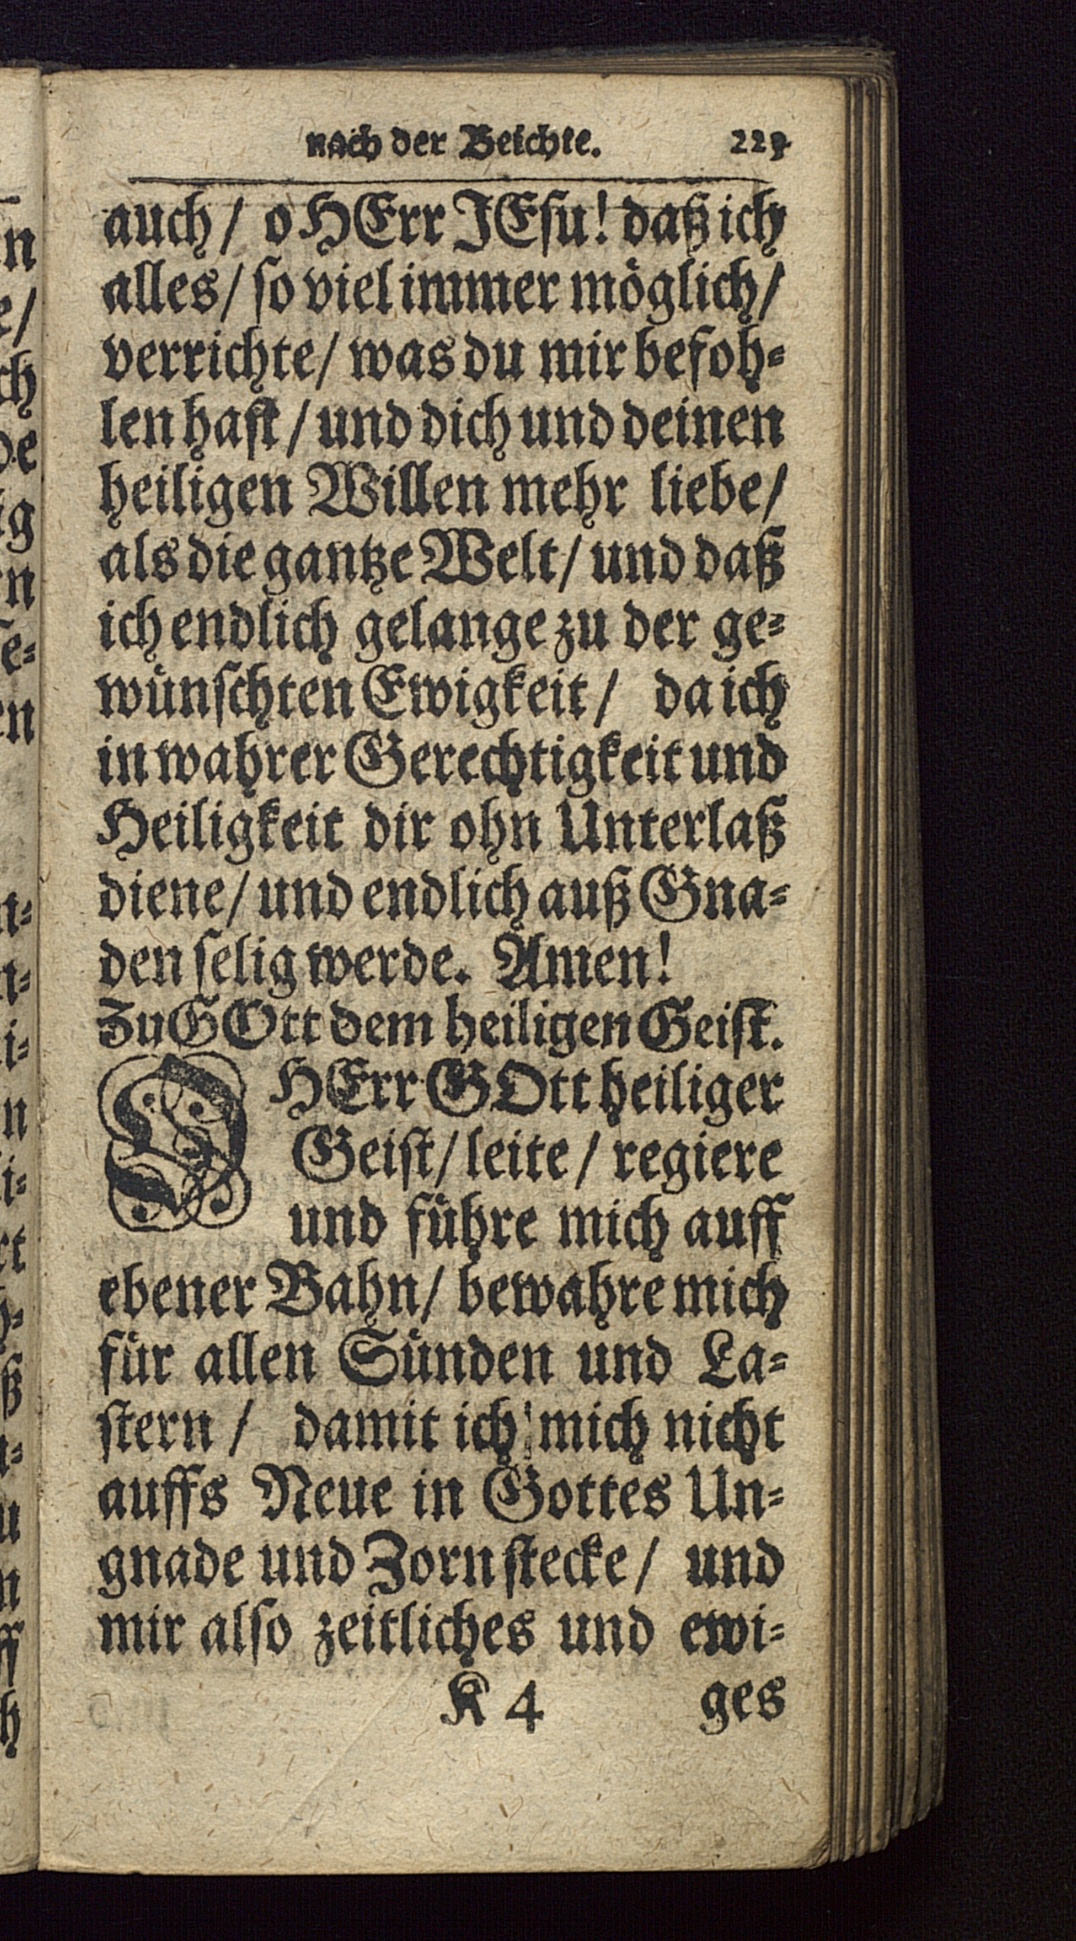 nach der Beichte.
auch / o HErr JEsu! daß ich
alles / so viel immer möglich /
verrichte / was du mir befoh-
len hast / und dich und deinen
heiligen Willen mehr liebe /
als die gantze Welt / und daß
ich endlich gelange zu der ge-
wünschten Ewigkeit / da ich
in wahrer Gerechtigkeit und
Heiligkeit dir ohn Unterlaß
diene / und endlich auß Gna-
den selig werde. Amen!
Zu GOtt dem heiligen Geist.
O HErr GOtt heiliger
Geist / leite / regiere
und führe mich auff
ebener Bahn / bewahre mich
für allen Sünden und La-
stern / damit ich mich nicht
auffs Neue in Gottes Un-
gnade und Zorn stecke / und
mir also zeitliches und ewi-
K 4 ges